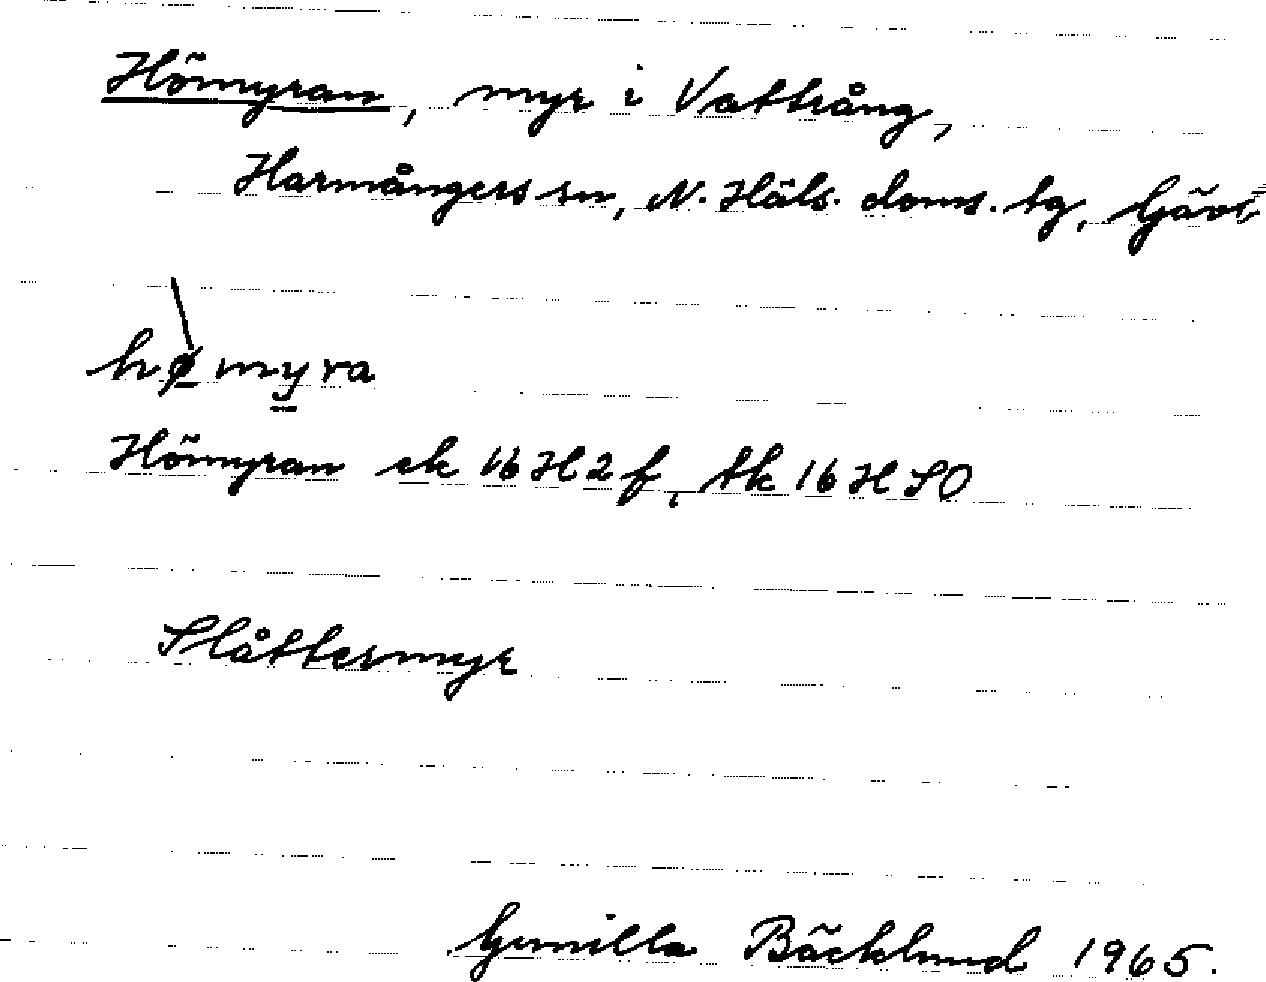 Hömyran, myr i Vattrång,
Harmångers sn, N. Häls. doms. tg, Gävl
hømyra
Hömyran ek 16H2f, tk 16H SO
Slåttermyr
Gunilla Bäcklund 1965.